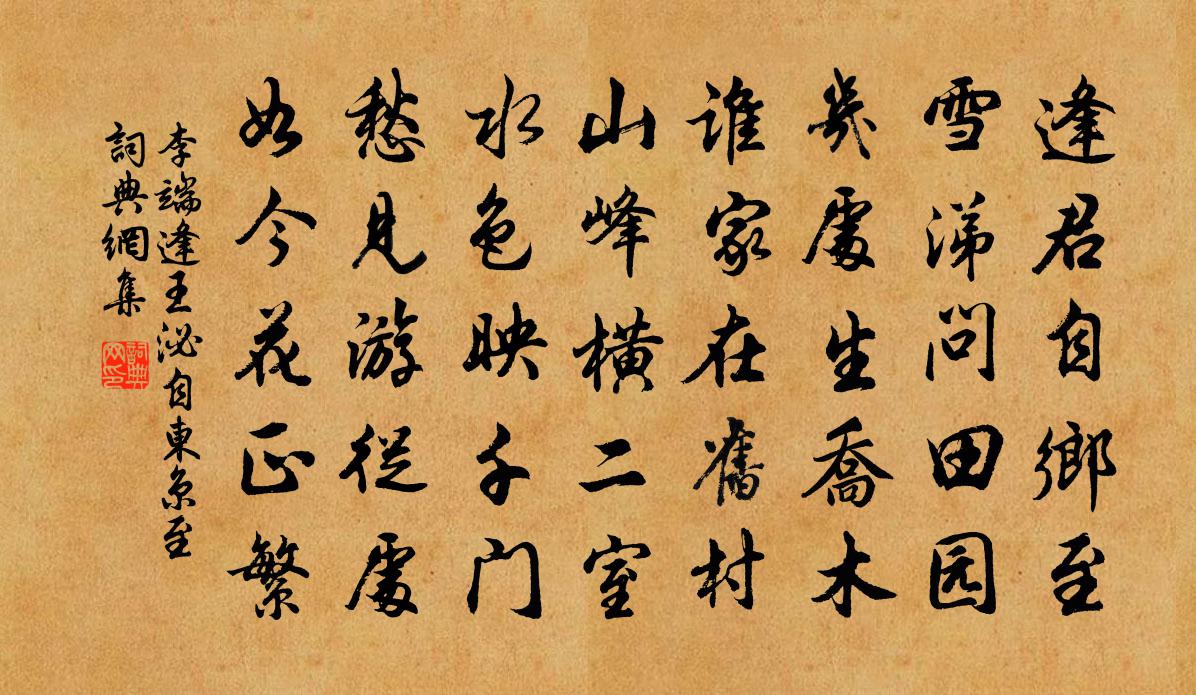 逢君自鄉至
雪涕問田园
幾處生喬木
誰家在舊村
山峰橫二室
水色映千门
愁見游從處
如今花正繁
李端逢王泌自東京至
詞典網集
詞典
网印